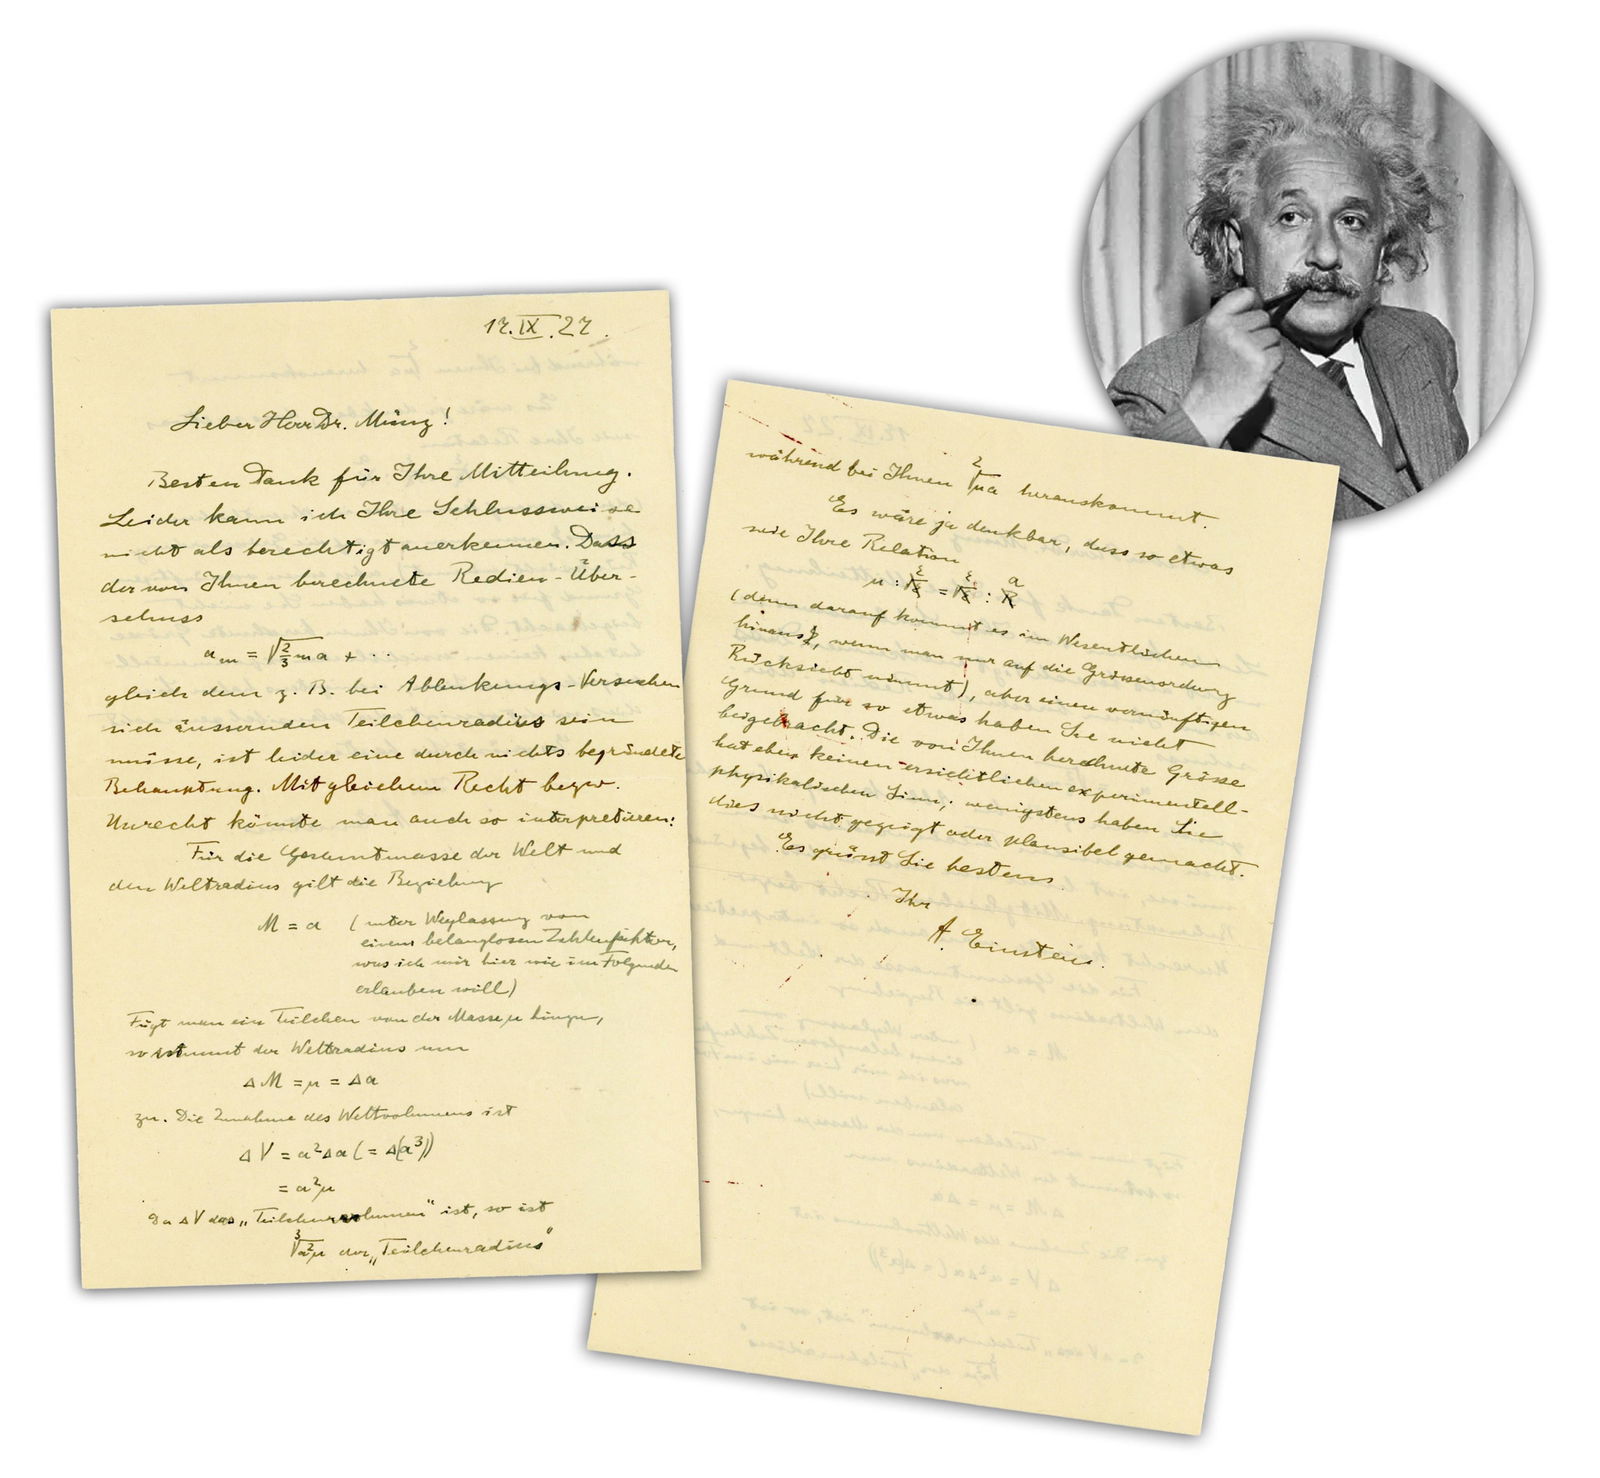 17.IX.27.
Lieber Herr Dr. Müntz!
Besten Dank für Ihre Mitteilung.
Leider kann ich Ihre Schlussweise
nicht als berechtigt anerkennen. Dass
der von Ihnen berechnete Radien-Über-
schuss
a_m = √(2/3) m a + ..
gleich dem z. B. bei Ablenkungs-Versuchen
sich äussernden Teilchenradius sein
müsse, ist leider eine durch nichts begründete
Behauptung. Mit gleichem Recht bezw.
Unrecht könnte man auch so interpretieren:
Für die Gesamtmasse der Welt und
den Weltradius gilt die Beziehung
M = a (unter Weglassung von
einem belanglosen Zahlenfaktor,
was ich mir hier wie im Folgenden
erlauben will)
Fügt man ein Teilchen von der Masse μ hinzu,
so nimmt der Weltradius um
Δ M = μ = Δa
zu. Die Zunahme des Weltvolumens ist
Δ V = a²Δa (= Δ(a³))
= a²μ
Da ΔV das „Teilchenvolumen" ist, so ist
∛a²μ der „Teilchenradius"
während bei Ihnen ²√μa herauskommt.
Es wäre ja denkbar, dass so etwas
wie Ihre Relation
μ : = : a
(denn darauf kommt es im Wesentlichen
hinaus, wenn man nur auf die Grössenordnung
Rücksicht nimmt), aber einen vernünftigen
Grund für so etwas haben Sie nicht
beigebracht. Die von Ihnen berechnete Grösse
hat eben keinen ersichtlichen experimentell-
physikalischen Sinn; wenigstens haben Sie
dies nicht gezeigt oder plausibel gemacht.
Es grüsst Sie bestens
Ihr
A. Einstein.